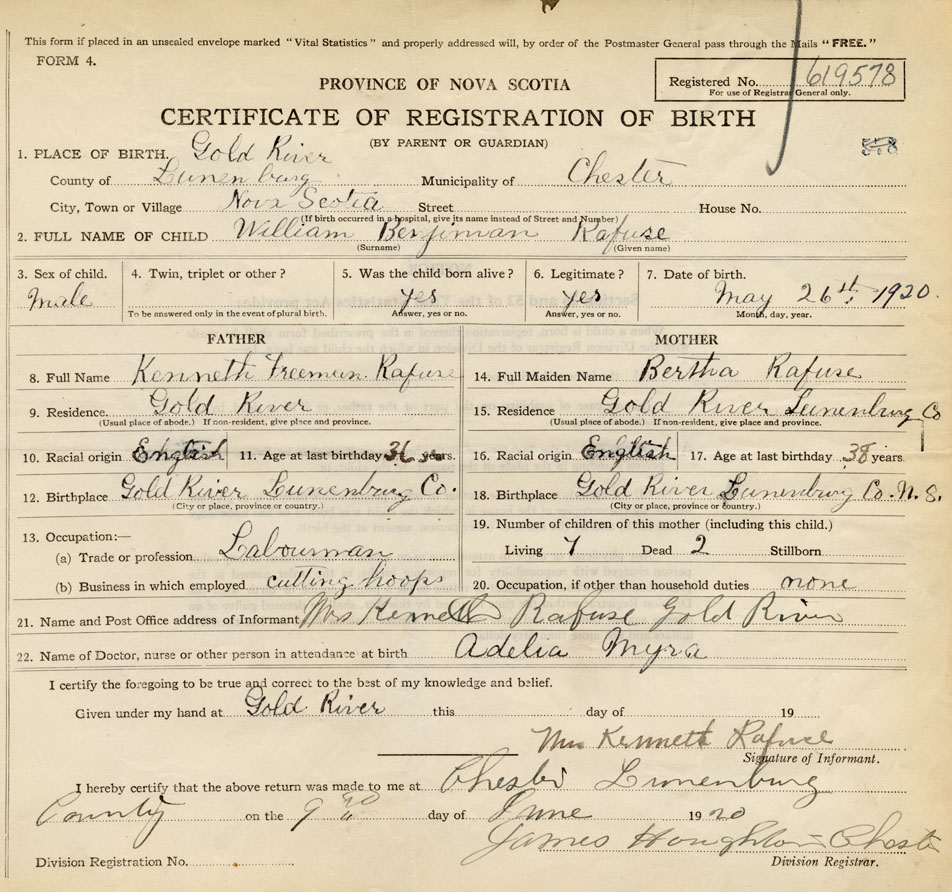 This form if placed in an unsealed envelope marked "Vital Statistics" and properly addressed will, by order of the Postmaster General pass through the Mails "FREE."
FORM 4.
Registered No. 619578
For use of Registrar General only.
PROVINCE OF NOVA SCOTIA
CERTIFICATE OF REGISTRATION OF BIRTH
(BY PARENT OR GUARDIAN)
578
1. PLACE OF BIRTH. Gold River
County of Lunenburg Municipality of Chester
City, Town or Village Nova Scotia Street House No.
(If birth occurred in a hospital, give its name instead of Street and Number)
2. FULL NAME OF CHILD William Benjiman Rafuse
(Surname) (Given name)
3. Sex of child. 4. Twin, triplet or other? 5. Was the child born alive? 6. Legitimate? 7. Date of birth.
Male yes yes May 26st. 1920.
To be answered only in the event of plural birth. Answer, yes or no. Answer, yes or no. Month, day, year.
FATHER MOTHER
8. Full Name Kenneth Freeman Rafuse 14. Full Maiden Name Bertha Rafuse
9. Residence. Gold River 15. Residence Gold River Lunenburg Co
(Usual place of abode.) If non-resident, give place and province. (Usual place of abode.) If non-resident, give place and province.
10. Racial origin English 11. Age at last birthday 36 years. 16. Racial origin English 17. Age at last birthday 38 years.
12. Birthplace Gold River Lunenburg Co. 18. Birthplace Gold River Lunenburg Co. N. S.
(City or place, province or country.) (City or place, province or country.)
13. Occupation:— 19. Number of children of this mother (including this child.)
(a) Trade or profession Labourman Living 7 Dead 2 Stillborn
(b) Business in which employed cutting hoops 20. Occupation, if other than household duties none
21. Name and Post Office address of Informant Mrs Kenneth Rafuse Gold River
22. Name of Doctor, nurse or other person in attendance at birth Adelia Myra
I certify the foregoing to be true and correct to the best of my knowledge and belief.
Given under my hand at Gold River this day of 19
Mrs Kenneth Rafuse
Signature of Informant.
I hereby certify that the above return was made to me at Chester Lunenburg
County on the 9 day of June 1920
James Houghton Chester
Division Registration No. Division Registrar.